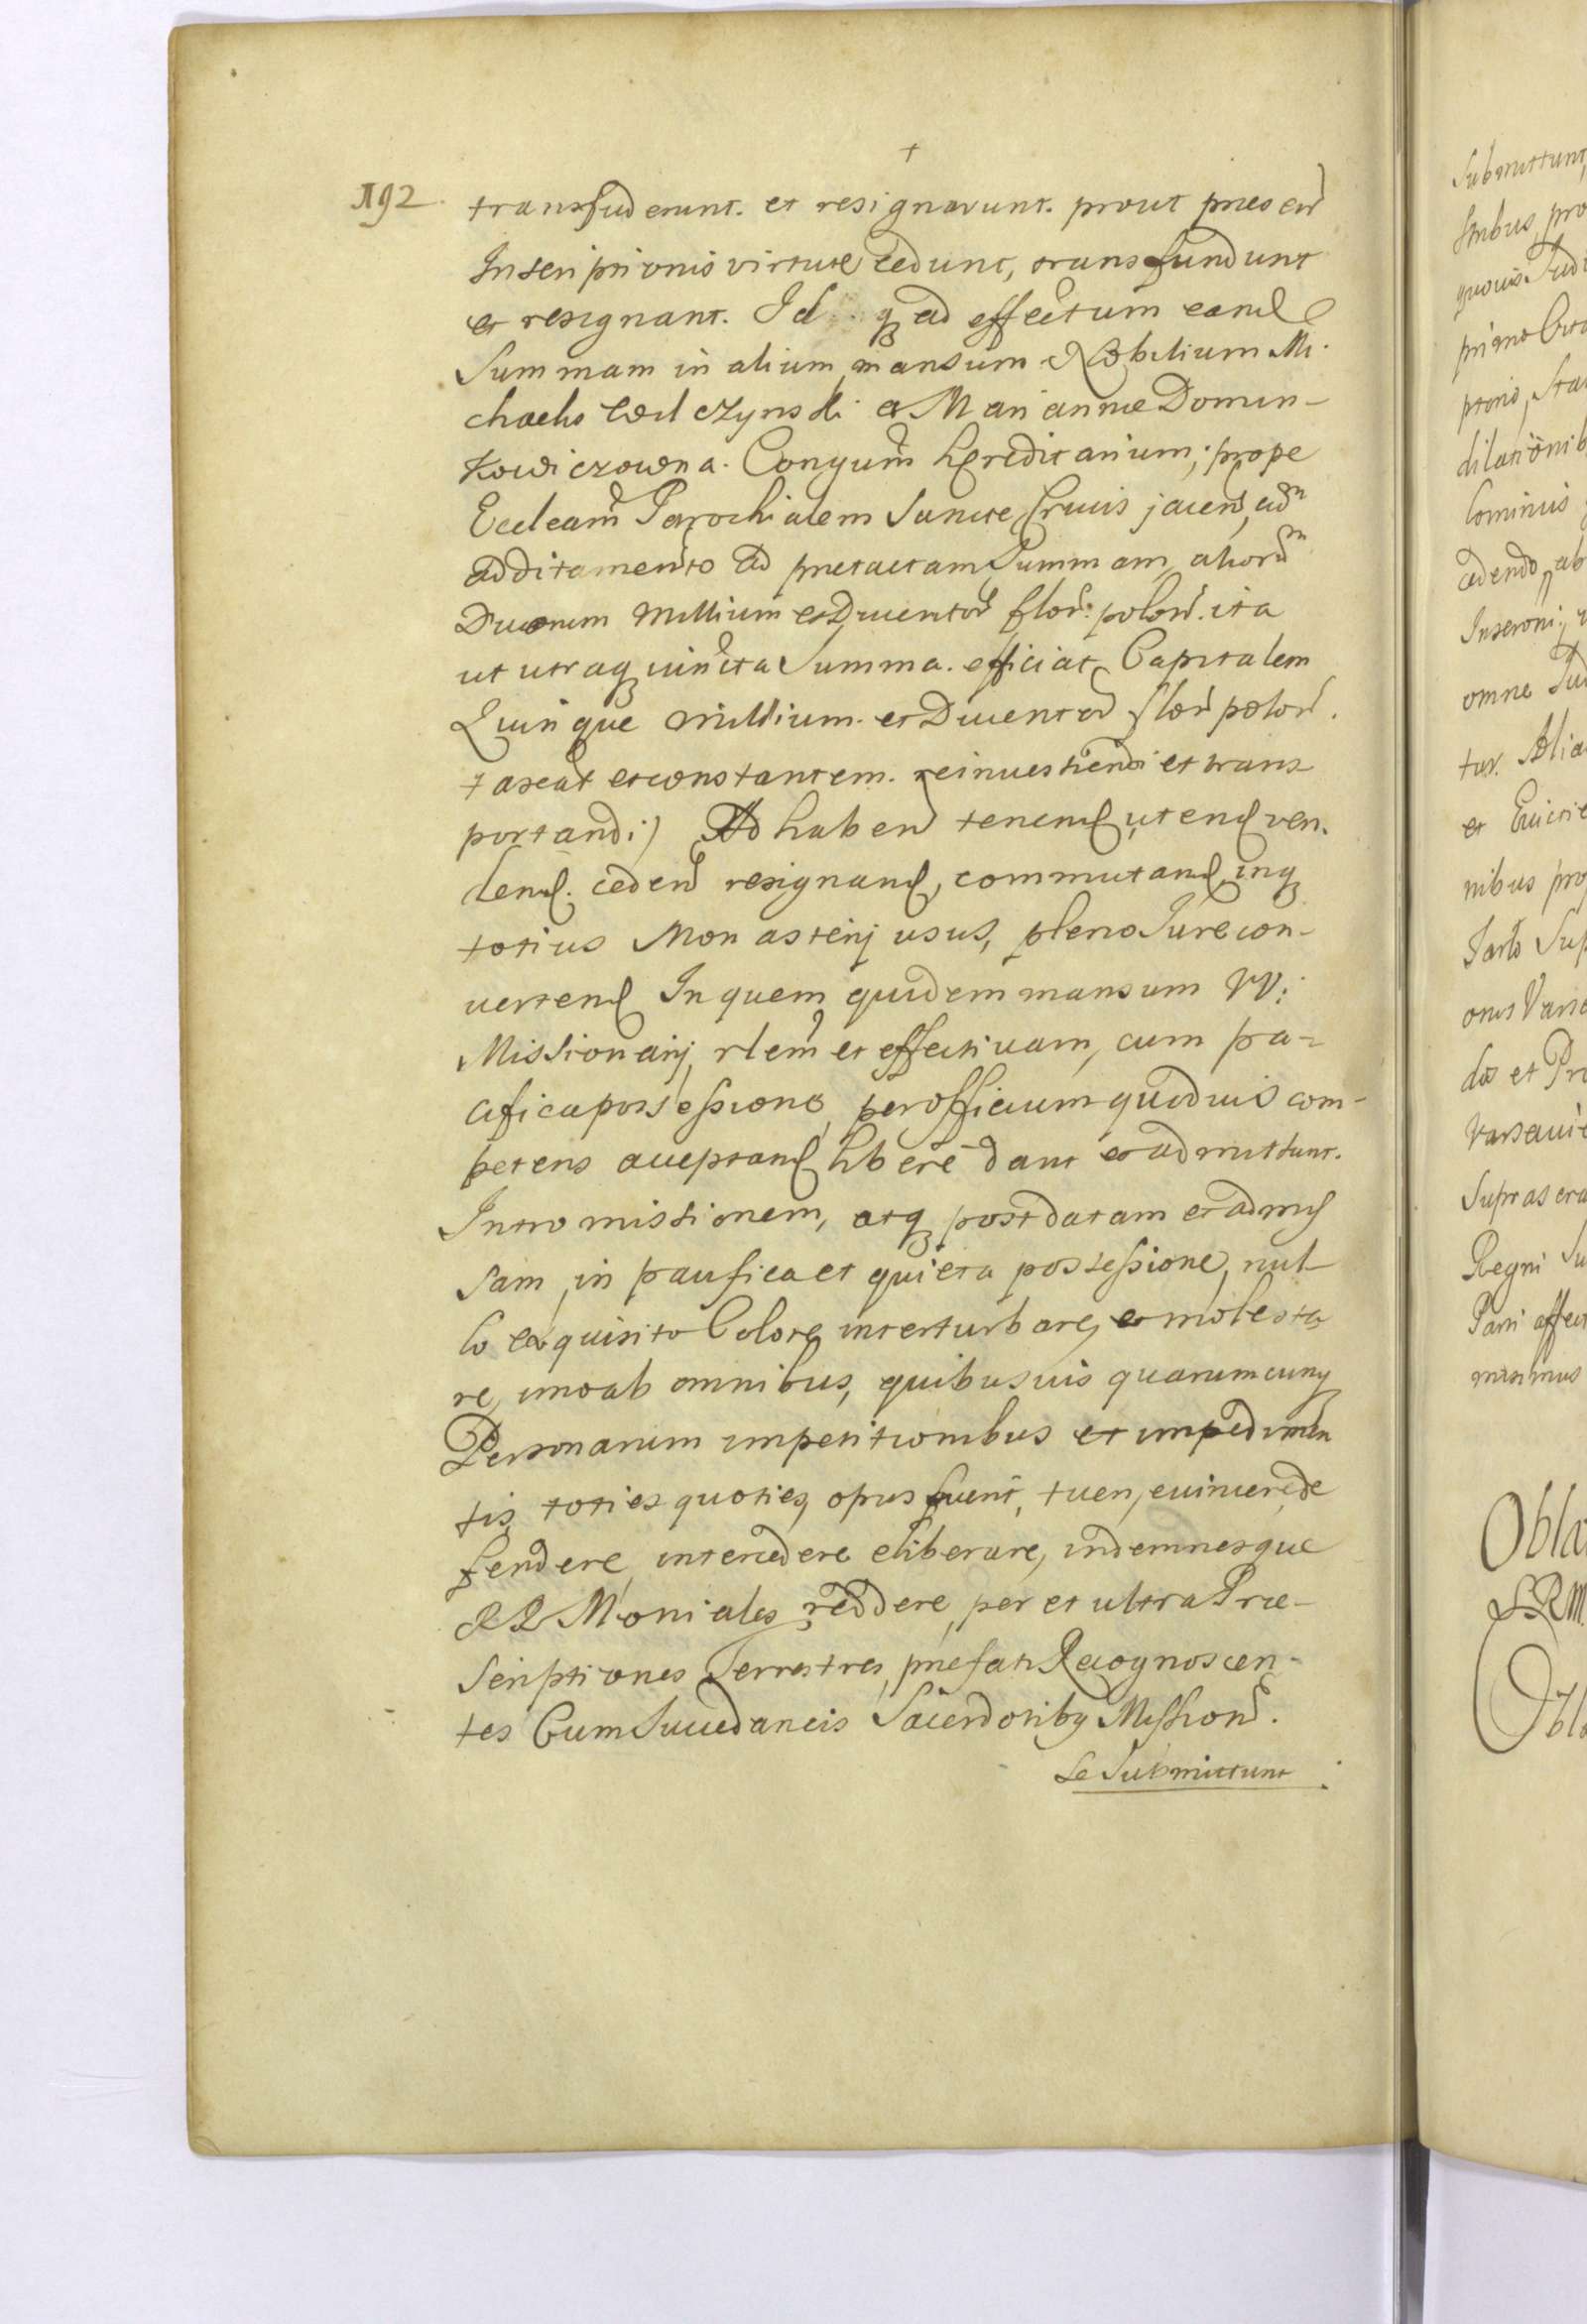 +
192. transfuderunt. et resignarunt. prout presen
Inscriptionis virtute cedunt, transfundunt
et resignant. Id q ad effectum eand
Summam in alium mansum Nobilium Mi-
chaelis Wilczynski et Mariannæ Domin-
kowiczowna. Conjugum hæreditarium, prope
Eccleam Parochialem Sancte Crucis jacen, ad
additamento ad pretactam Summam, alior
Duorum Millium et Ducentor flor: polon. ita
ut utraq iuncta Summa. efficiat Capitalem
Quinque Millium. et Ducentor flor polon.
faciat et constantem. reinvestiendi et trans
portandi) Ad haben tenend utend ven-
dend. ceden resignand, commutand inq
totius Monasterij usus, pleno Jure con-
vertend In quem quidem mansum VV:
Missionarij, rlem et effectivam, cum pa-
cifica possessione, per officium quodvis com-
petens acceptand libere dant et admittunt.
Intromissionem, atq post datam et admis
sam, in paucifica et quieta possessione, nul-
lo exquisito Colore, interturbare, et molesta
re, imo ab omnibus, quibusuis quarumcunq
Personarum impetitionibus et impedimen
tis, toties quoties, opus fuerit, tueri, evincere, de
fendere, intercedere eliberare, indemnesque
RR Moniales reddere, per et ultra Præ-
scriptiones Terrestres, prefati Recognoscen-
tes Cum Succedaneis Sacerdotibq Mission.
se Submittunt
Submittunt,
pro
quovis Judi
primo
ptionis, Sta
dilationib
Cominus
cedendo, ab
Inseroni, 
omne Ju
tur. Alia
et Evicti
nibus pro
Sup
onis Varsa
dos et Pr
Varsavie
Supras cra
Regni Su
Parti affect
minimus
Obla
S.R.M.
Obla